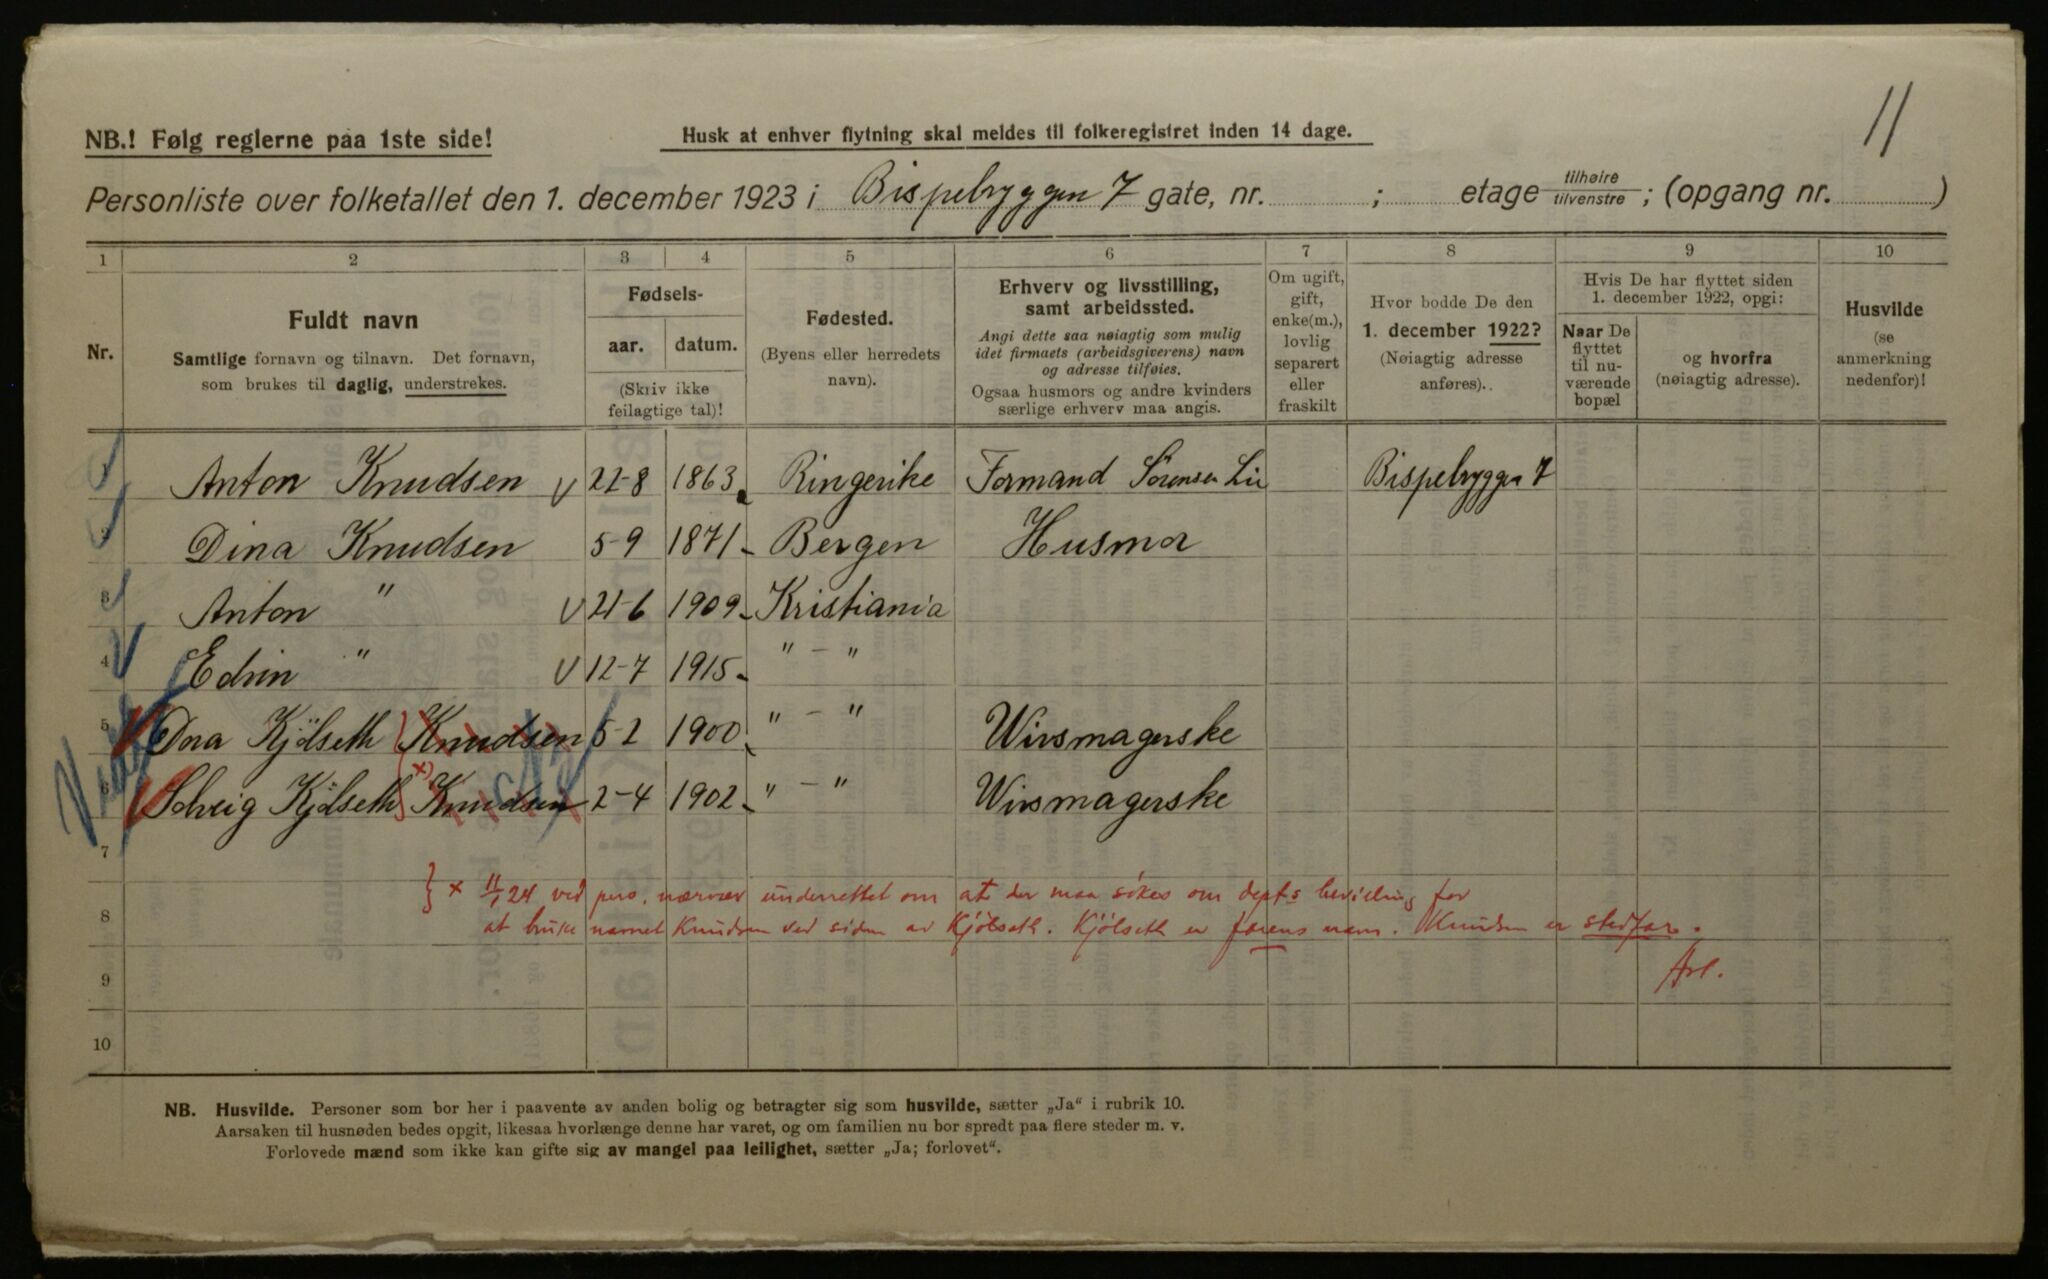 11
NB.! Følg reglerne paa 1ste side!
Husk at enhver flytning skal meldes til folkeregistret inden 14 dage.
Personliste over folketallet den 1. december 1923 i Bispebryggen 7 gate, nr. ; etage tilhøire tilvenstre ; (opgang nr. )
1 2 3 4 5 6 7 8 9 10
Nr.
Fuldt navn
Samtlige fornavn og tilnavn. Det fornavn,
som brukes til daglig, understrekes.
Fødsels-
aar. datum.
(Skriv ikke
feilagtige tal)!
Fødested.
(Byens eller herredets
navn).
Erhverv og livsstilling,
samt arbeidssted.
Angi dette saa nøiagtig som mulig
idet firmaets (arbeidsgiverens) navn
og adresse tilføies.
Ogsaa husmors og andre kvinders
særlige erhverv maa angis.
Om ugift,
gift,
enke(m.),
lovlig
separert
eller
fraskilt
Hvor bodde De den
1. december 1922?
(Nøiagtig adresse
anføres).
Hvis De har flyttet siden
1. december 1922, opgi:
Naar De
flyttet
til nu-
værende
bopæl
og hvorfra
(nøiagtig adresse).
Husvilde
(se
anmerkning
nedenfor)!
1 Anton Knudsen V 22-8 1863 Ringerike Formand Sørensen Bispebryggen 7
2 Dina Knudsen 5-9 1871 Bergen Husmor
3 Anton " V 21-6 1909 Kristiania
4 Edvin " V 12-7 1915 " - "
5 Dna Kjölseth Knudsen 5-2 1900 " - " Wivsmagerske
6 Solveig Kjölseth x) Knudsen 2-4 1902 " - " Wivsmagerske
7
} x 11/1 24 ved pers. nærvær underrettet om at der maa søkes om dept.s bevilling for
8 at bruke navnet Knudsen ved siden av Kjölseth. Kjölseth er farens navn. Knudsen er stedfar.
9
10
NB. Husvilde. Personer som bor her i paavente av anden bolig og betragter sig som husvilde, sætter „Ja“ i rubrik 10.
Aarsaken til husnøden bedes opgit, likesaa hvorlænge denne har varet, og om familien nu bor spredt paa flere steder m. v.
Forlovede mænd som ikke kan gifte sig av mangel paa leilighet, sætter „Ja; forlovet“.